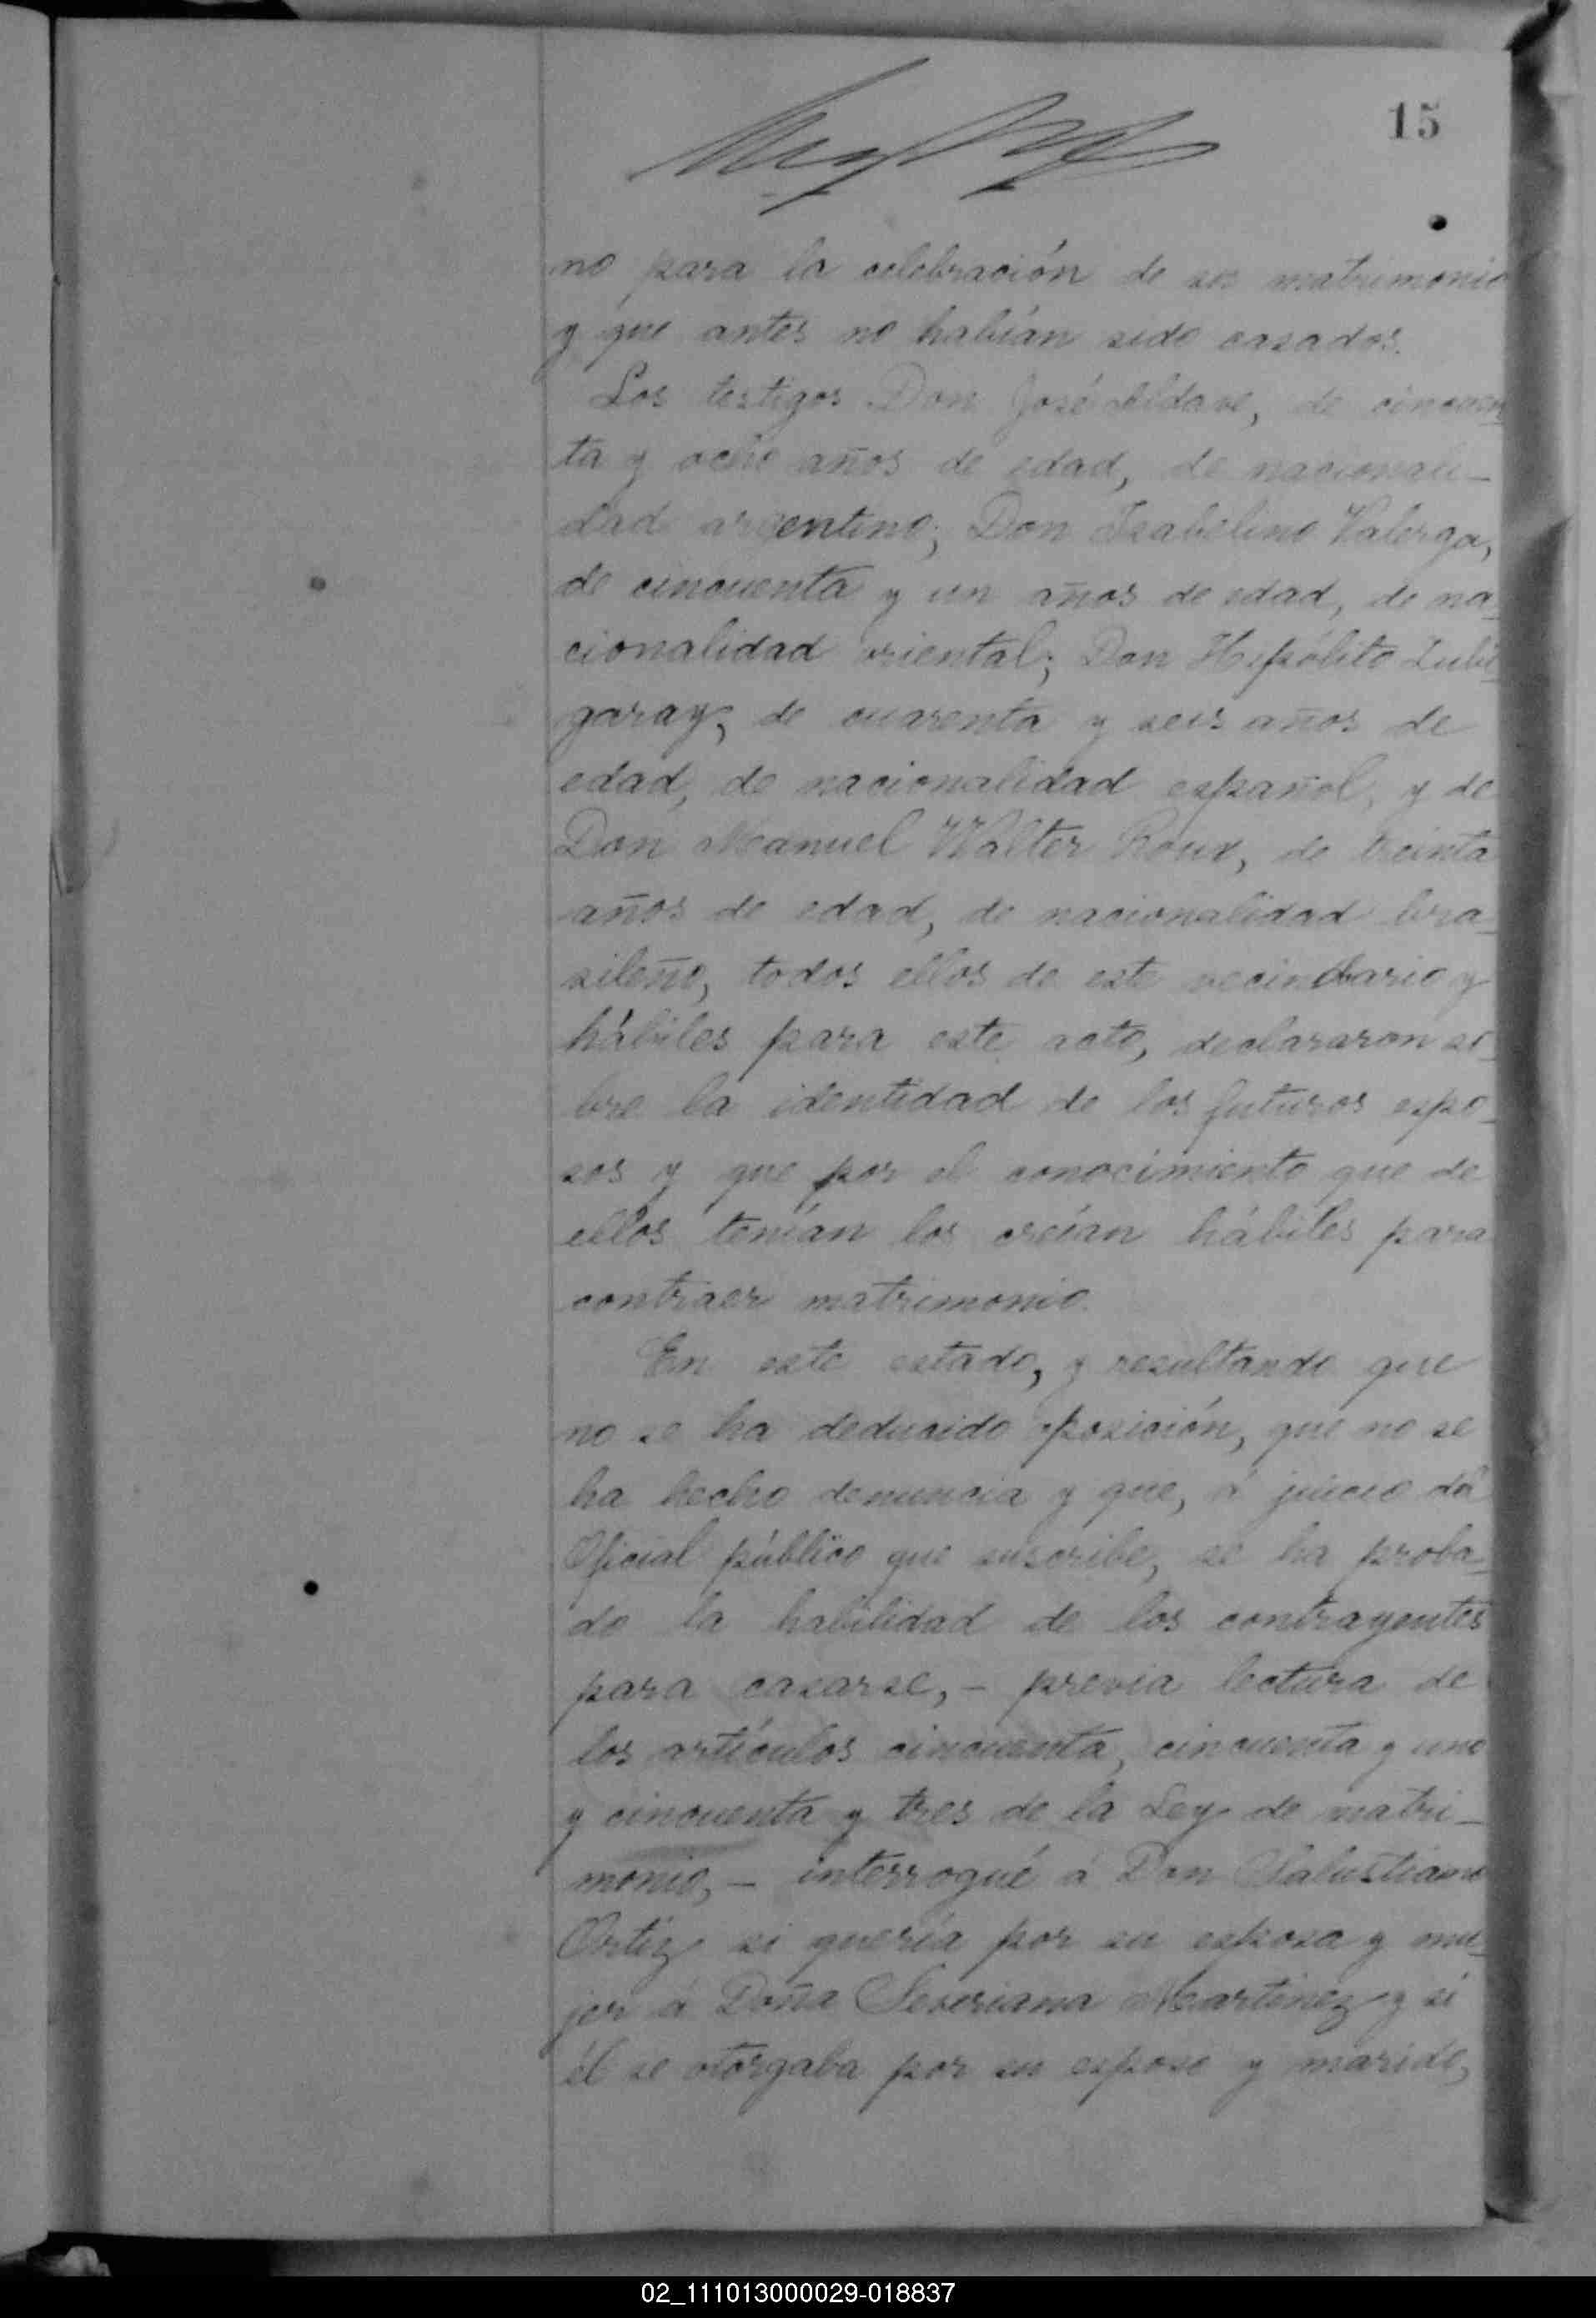 15
no para la celebración de su matrimonio
y que antes no habían sido casados.
Los testigos Don José Aldave, de cincuen
ta y ocho años de edad, de nacionali-
dad argentino; Don Isabelino Valerga,
de cincuenta y un años de edad, de na_
cionalidad oriental; Don Hipólito Zubi
garay, de cuarenta y seis años de
edad, de nacionalidad español, y de
Don Manuel Walter Roux, de treinta
años de edad, de nacionalidad bra_
sileño, todos ellos de este vecindario y
hábiles para este acto, declararon so_
bre la identidad de los futuros espo_
sos y que por el conocimiento que de
ellos tenían los creían hábiles para
contraer matrimonio.
En este estado, y resultando que
no se ha deducido oposición, que no se
ha hecho denuncia y que, á juicio del
Oficial público que suscribe, se ha proba_
do la habilidad de los contrayentes
para casarse,- previa lectura de
los artículos cincuenta, cincuenta y uno
y cincuenta y tres de la Ley de matri_
monio,- interrogué á Don Salustiano
Ortiz si quería por su esposa y mu_
jer á Doña Severiana Martinez y si
él se otorgaba por su esposo y marido,
02_111013000029-018837